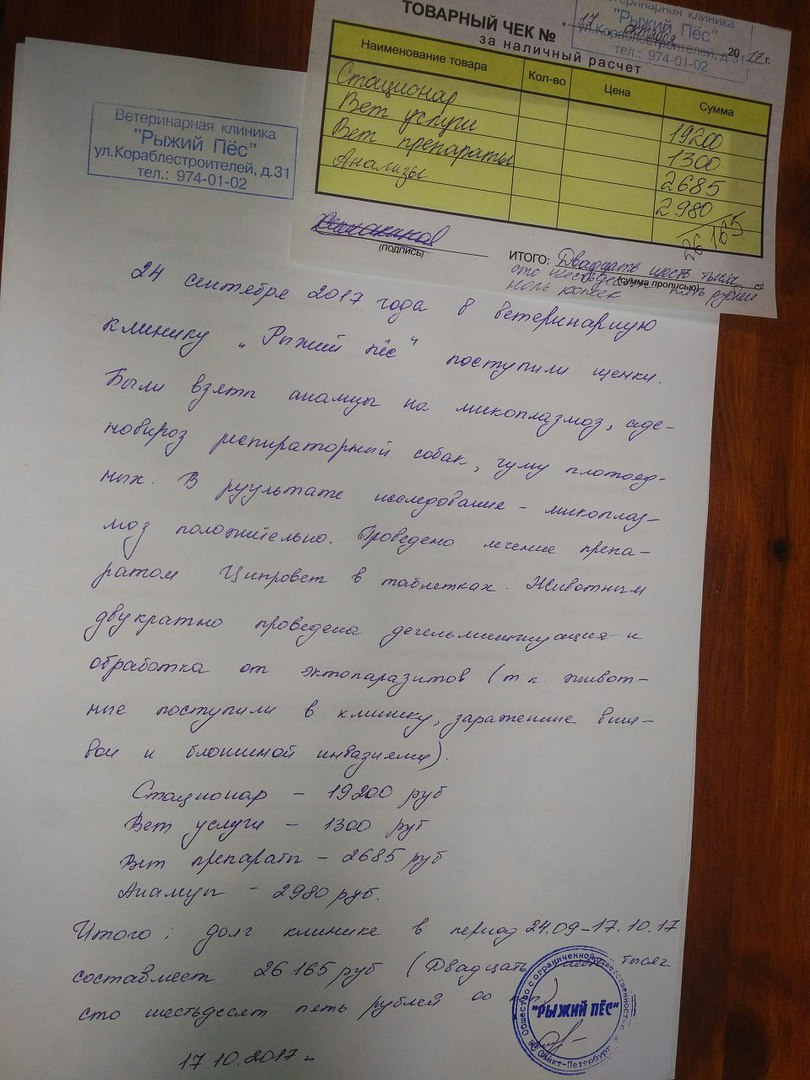 ТОВАРНЫЙ ЧЕК №
17 октября 2017 г.
за наличный расчет
Ветеринарная клиника
"Рыжий Пёс"
ул.Кораблестроителей, д.31
тел.: 974-01-02
Наименование товара Кол-во Цена Сумма
Стационар 19200
Вет услуги 1300
Вет препараты 2685
Анализы 2980
26165
(подпись)
ИТОГО: Двадцать шесть тысяч
сто шестьдесят пять рублей
(сумма прописью)
ноль копеек
Ветеринарная клиника
"Рыжий Пёс"
ул.Кораблестроителей, д.31
тел.: 974-01-02
24 сентября 2017 года в ветеринарную
клинику „Рыжий пёс" поступили щенки.
Были взяты анализы на микоплазмоз, аде-
новироз респираторный собак, чуму плотояд-
ных. В результате исследование - микоплаз-
моз положительно. Проведено лечение препа-
ратом Ципровет в таблетках. Животным
двукратно проведена дегельминтизация и
обработка от эктопаразитов (т к живот-
ные поступили в клинику, зараженные вши-
вой и блошиной инвазиями).
Стационар - 19200 руб
Вет услуги - 1300 руб
Вет препараты - 2685 руб
Анализы - 2980 руб.
Итого: долг клинике в период 24.09-17.10.17
составляет 26 165 руб (Двадцать шесть тысяч
сто шестьдесят пять рублей 00 коп)
17.10.2017 г
Общество с ограниченной ответственностью
"РЫЖИЙ ПЁС"
Санкт-Петербург